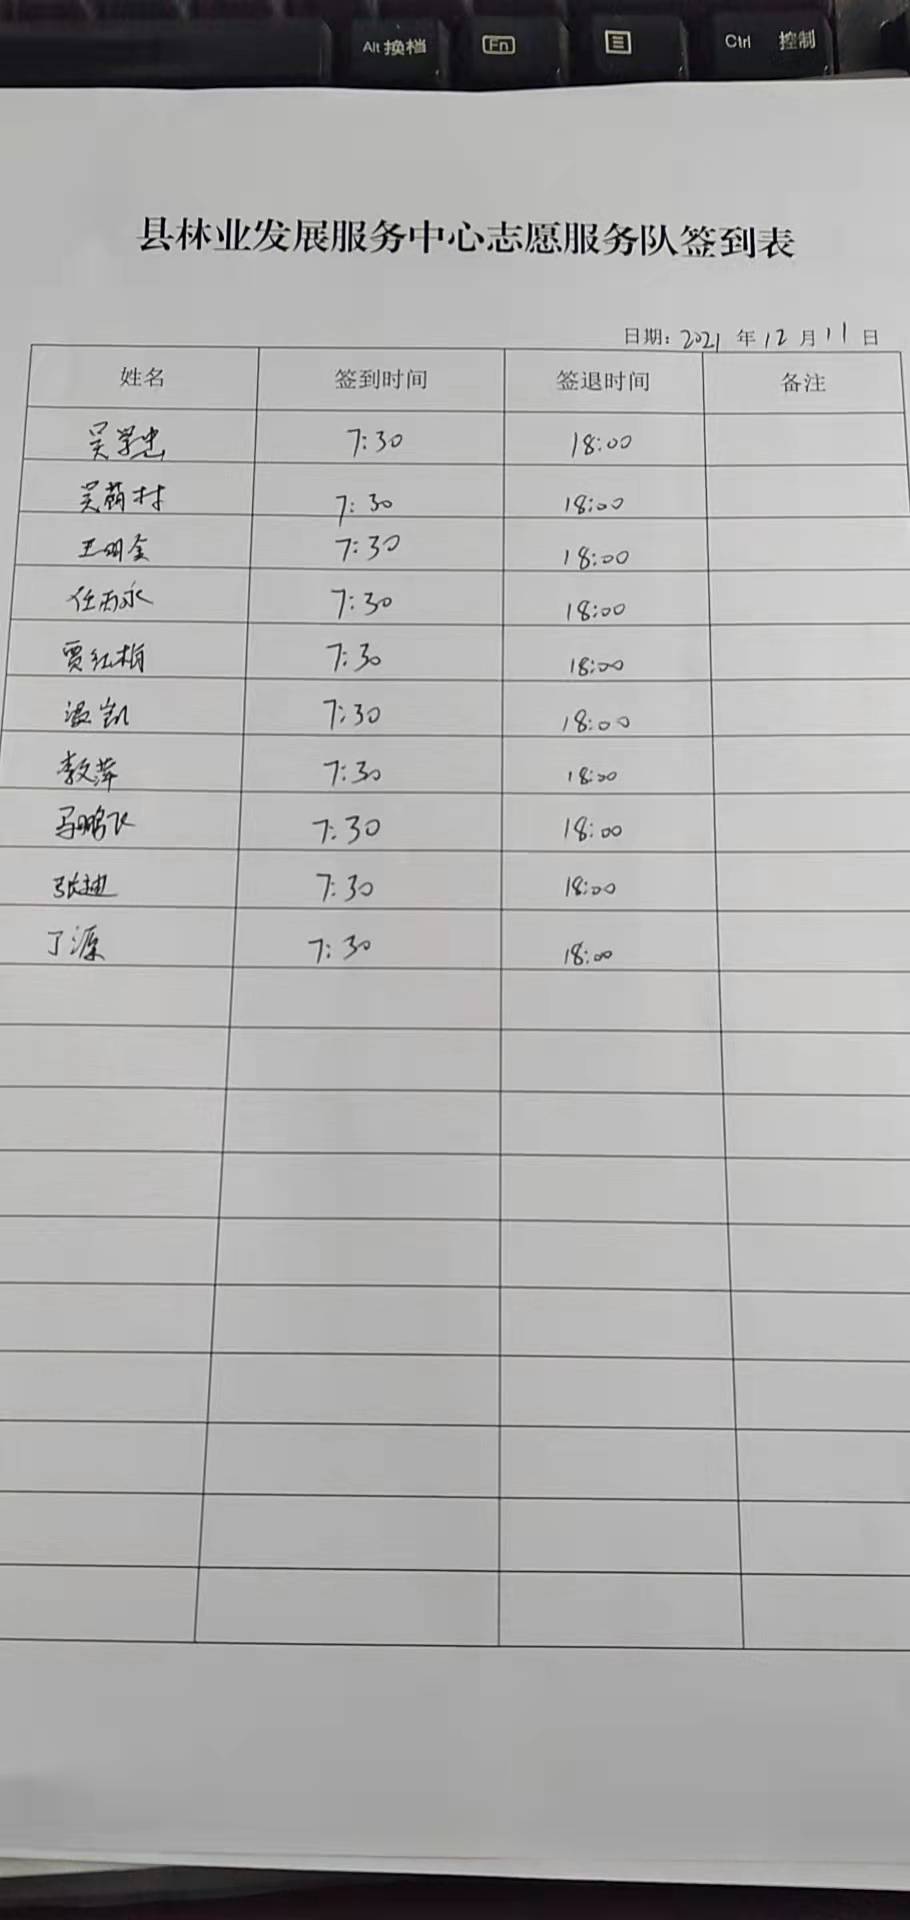 Alt 换档 Fn Ctrl 控制
县林业发展服务中心志愿服务队签到表
日期: 2021 年 12 月 11 日
姓名 签到时间 签退时间 备注
吴学忠 7:30 18:00
吴荫村 7:30 18:00
王明金 7:30 18:00
任丙永 7:30 18:00
贾红梅 7:30 18:00
温凯 7:30 18:00
李文萍 7:30 18:00
马鹏飞 7:30 18:00
张迪 7:30 18:00
丁源 7:30 18:00